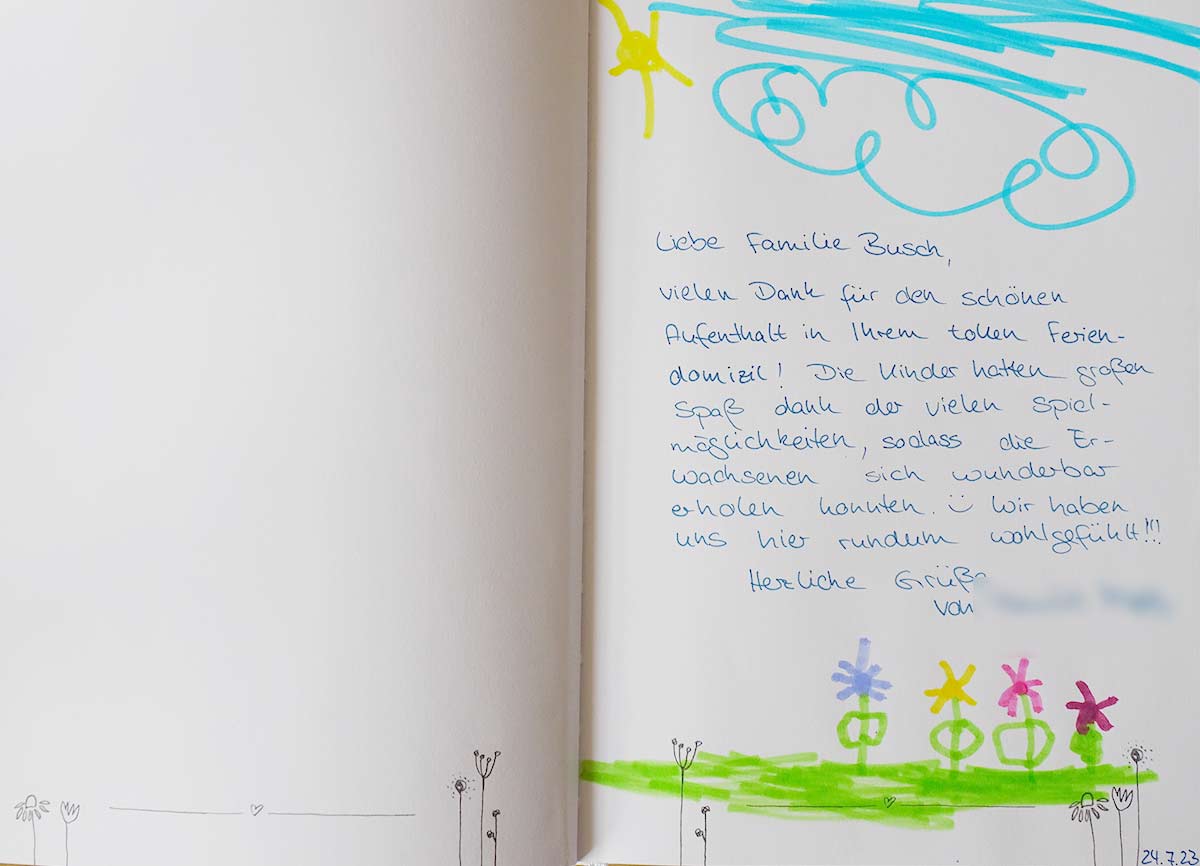 Liebe Familie Busch,
vielen Dank für den schönen
Aufenthalt in Ihrem tollen Ferien-
domizil! Die Kinder hatten großen
Spaß dank der vielen Spiel-
möglichkeiten, sodass die Er-
wachsenen sich wunderbar
erholen konnten. Wir haben
uns hier rundum wohlgefühlt!!!
Herzliche Grüße
von
24.7.23